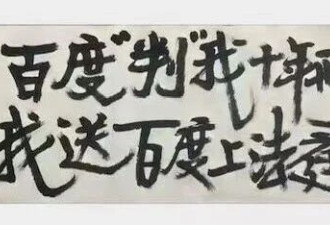 百度"判"我十年
我送百度上法庭